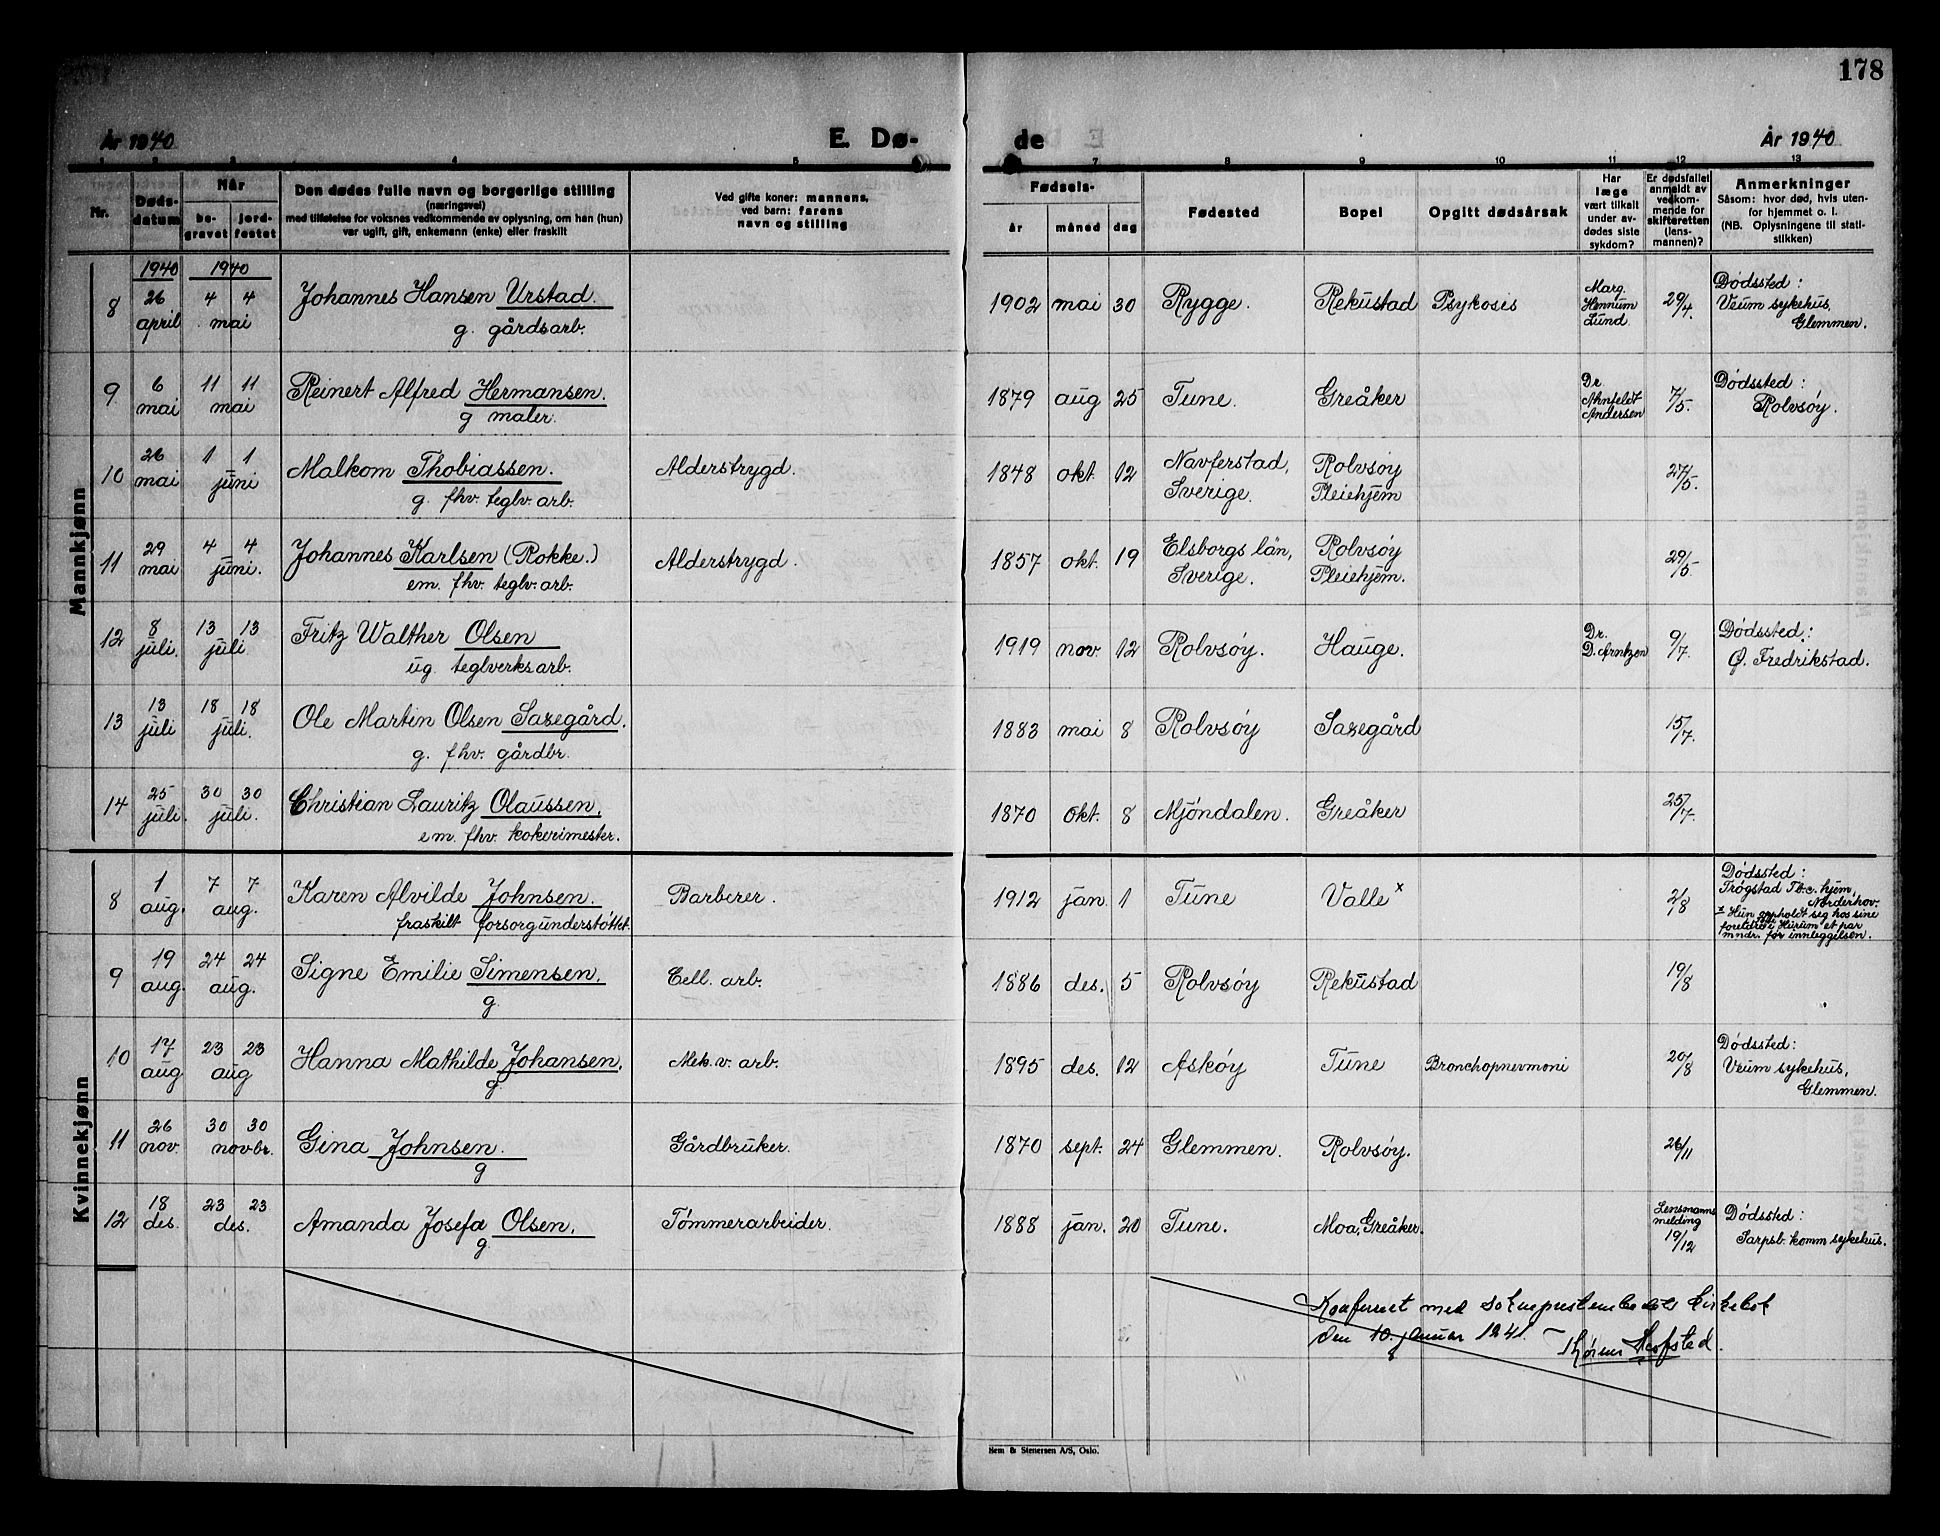 178
År 1940
E. Dø-
de
År 1940
1 2 3 4 5 7 8 9 10 11 12 13
Nr.
Døds-
datum
Når
be-
gravet
jord-
festet
Den dødes fulle navn og borgerlige stilling
(næringsvei)
med tilføielse for voksnes vedkommende av oplysning, om han (hun)
var ugift, gift, enkemann (enke) eller fraskilt
Ved gifte koner: mannens,
ved barn: farens
navn og stilling
Fødsels-
år
måned
dag
Fødested
Bopel
Opgitt dødsårsak
Har
læge
vært tilkalt
under av-
dødes siste
sykdom?
Er dødsfallet
anmeldt av
vedkom-
mende for
skifteretten
(lens-
mannen)?
Anmerkninger
Såsom: hvor død, hvis uten-
for hjemmet o. l.
(NB. Oplysningene til stati-
stikken)
Mannkjønn
1940 1940
8 26 april 4 4 mai Johannes Hansen Urstad.
g. gårdsarb.
1902 mai 30 Rygge. Rekustad Psykosis Marg. Hennum Lund. 29/4. Dødssted:
Veum sykehus,
Glemmen.
9 6 mai 11 11 mai Reinert Alfred Hermansen.
g maler.
1879 aug 25 Tune. Greåker Dr Ahnfeldt Andersen 7/5. Dødssted:
Rolvsøy.
10 26 mai 1 1 juni Malkom Thobiassen.
g. fhv. teglv. arb.
Alderstrygd.
1848 okt. 12 Navferstad,
Sverige.
Rolvsøy
Pleiehjem
27/5.
11 29 mai 4 4 juni. Johannes Karlsen (Rokke.)
em. fhv. teglv. arb.
Alderstrygd.
1857 okt. 19 Elsborgs län,
Sverige.
Rolvsøy
Pleiehjem.
29/5.
12 8 juli. 13 13 juli. Fritz Walther Olsen
ug. teglverksarb.
1919 nov. 12 Rolvsøy. Hauge. Dr. D. Arntzen 9/7. Dødssted:
Ø. Fredrikstad.
13 13 juli 18 18 juli. Ole Martin Olsen Saxegård.
g. fhv. gårdbr.
1883 mai 8 Rolvsøy Saxegård 15/7.
14 25 juli. 30 30 juli. Christian Lauritz Olaussen,
em. fhv. kokerimester.
1870 okt. 8 Mjøndalen. Greåker 25/7.
Kvinnekjønn
8 1 aug. 7 7 aug. Karen Alvilde Johnsen.
fraskilt forsorgunderstøttet.
Barberer.
1912 jan. 1 Tune Valle x 2/8 Dødssted:
Trøgstad Tb.c. hjem,
Norderhov.
x Hun oppholdt seg hos sine
foreldre i Hurum et par
mndr. før innleggelsen.
9 19 aug. 24 24 aug. Signe Emilie Simensen.
g.
Cell. arb.
1886 des. 5 Rolvsøy Rekustad 19/8
10 17 aug 23 23 aug Hanna Mathilde Johansen,
g.
Mek. v. arb.
1895 des. 12 Askøy Tune Bronchopnevmoni 20/8 Dødssted:
Veum sykehus,
Glemmen.
11 26 nov. 30 30 novbr. Gina Johnsen.
g
Gårdbruker.
1870 sept. 24 Glemmen. Rolvsøy. 26/11
12 18 des. 23 23 des. Amanda Josefa Olsen.
g.
Tømmerarbeider.
1888 jan. 20 Tune. Moa, Greåker. Lensmanns melding 19/12 Dødssted:
Sarpsb. komm sykehus.
Konferert med sokneprestembedets kirkebok
den 10. januar 1941.
Hem & Stenersen A/S, Oslo.